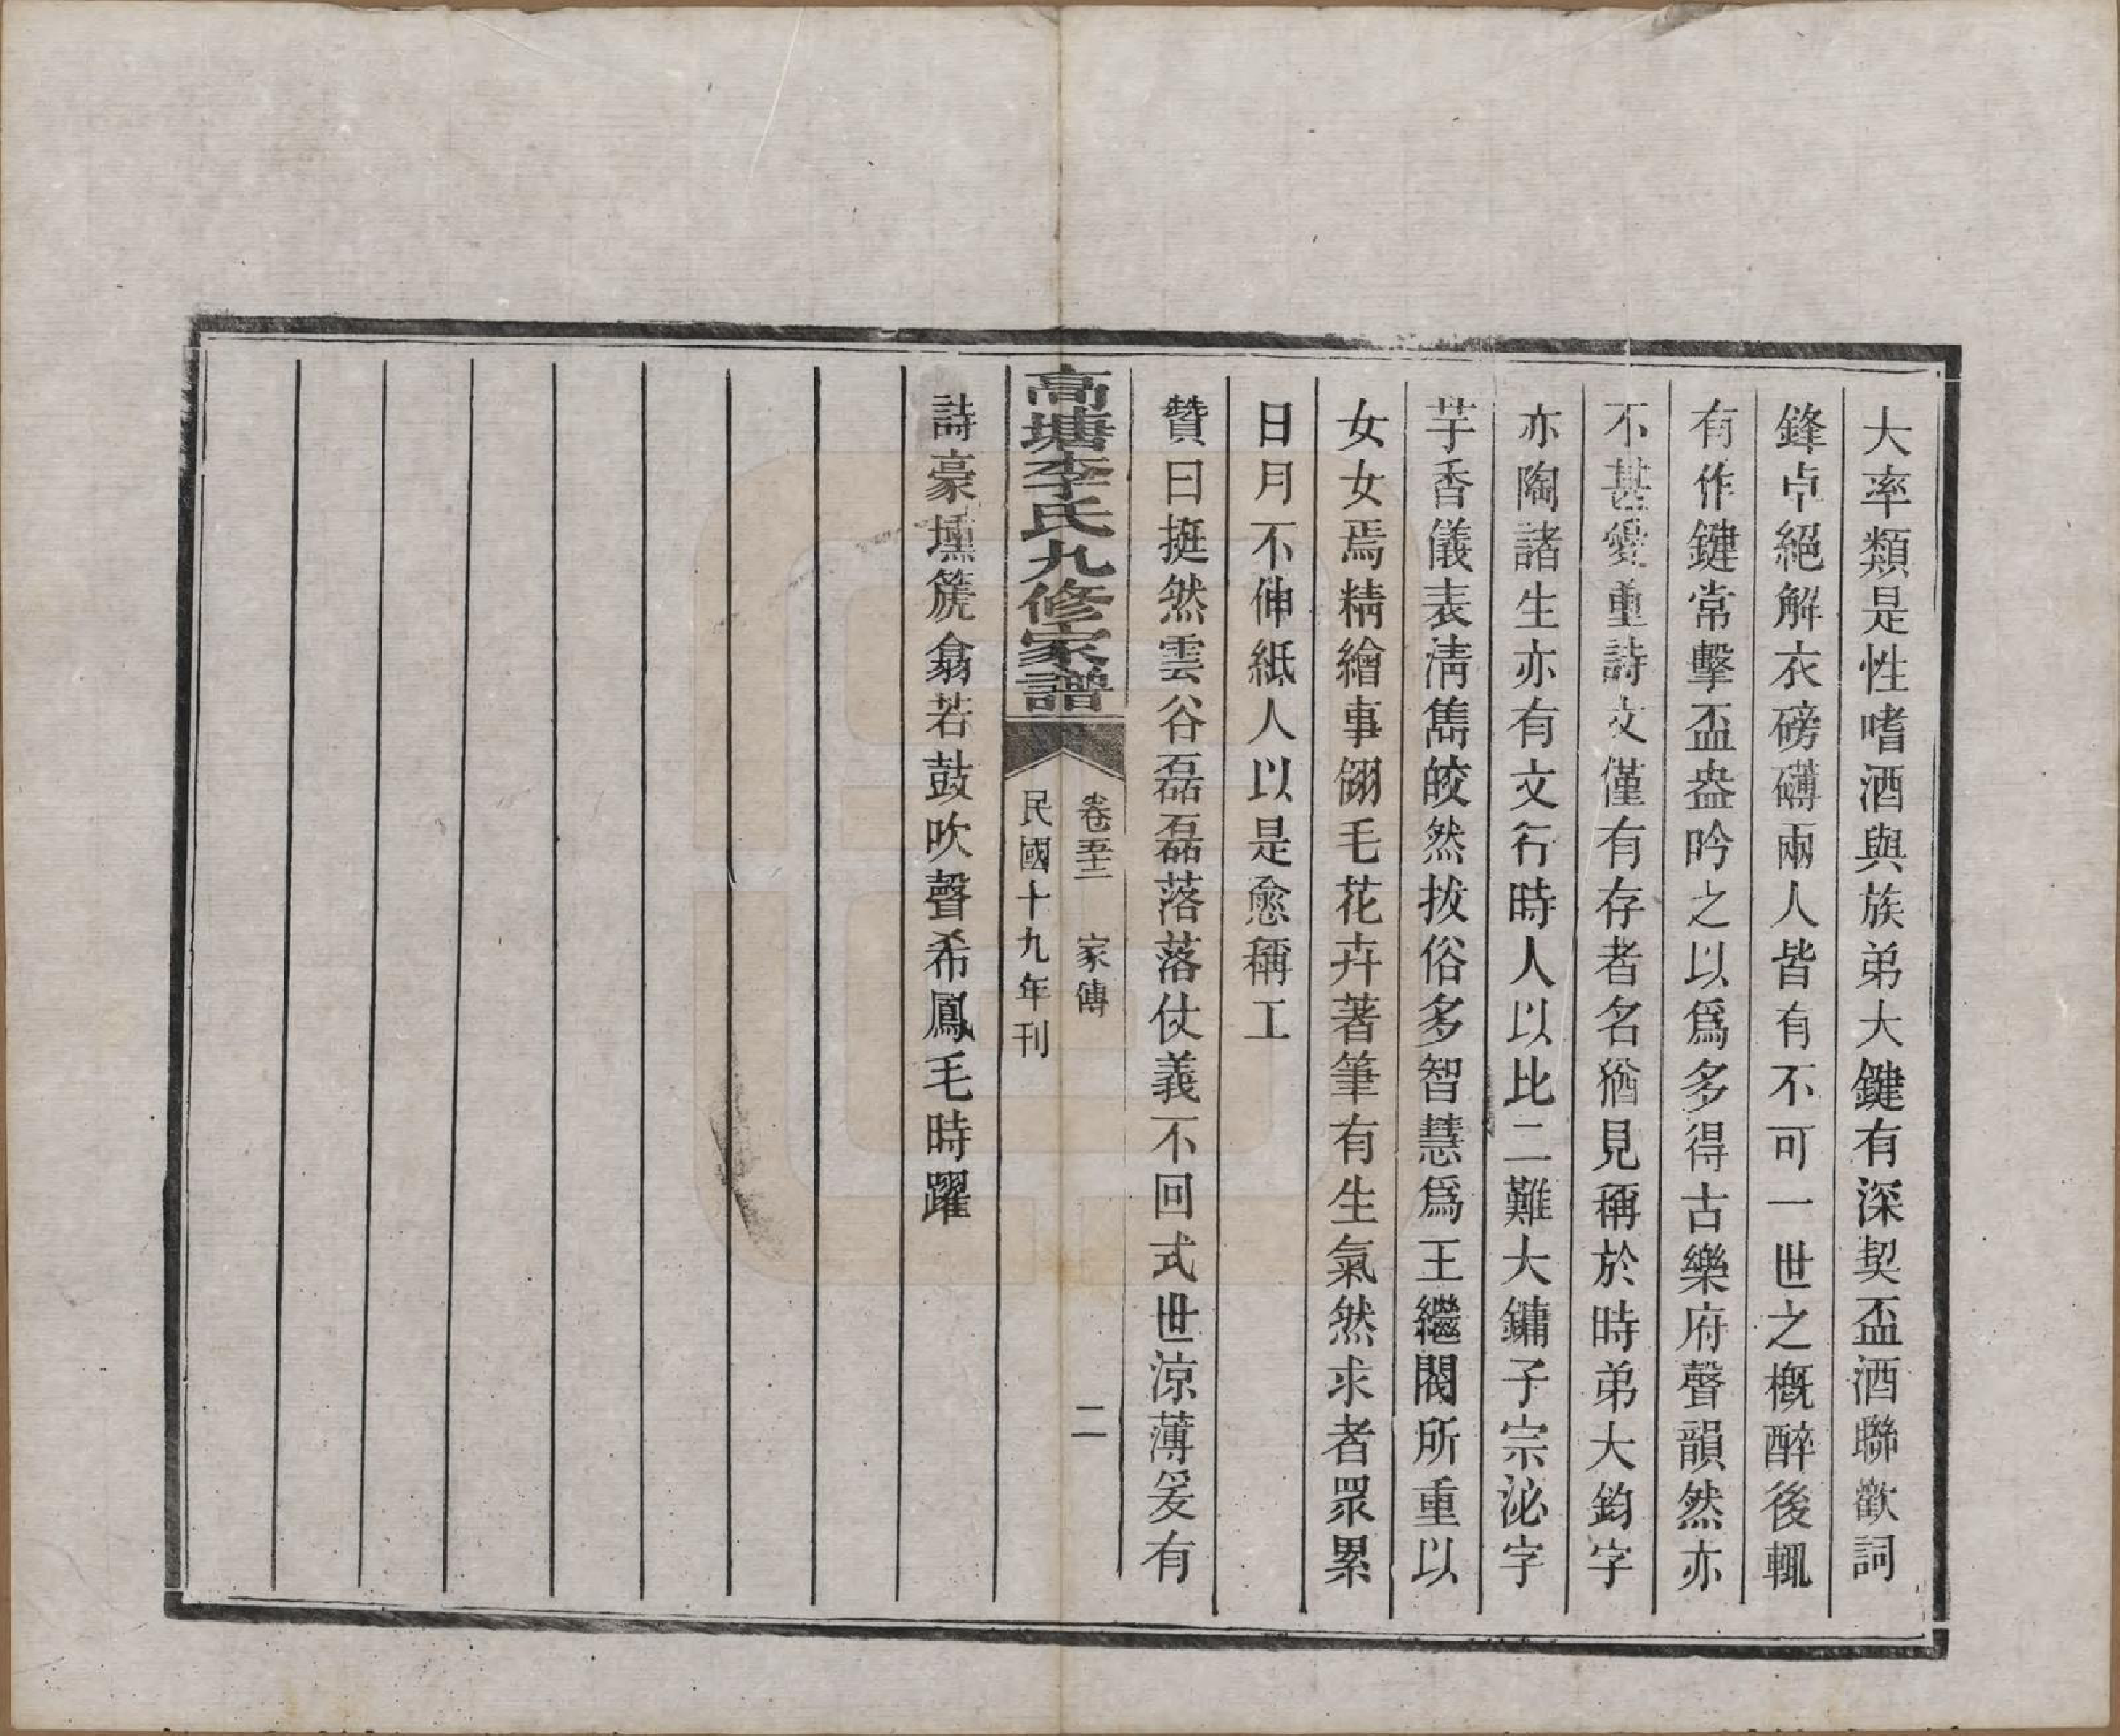 大率類是性嗜酒與族弟大鍵有深契盃酒聯歡詞
鋒卓絕解衣磅礴兩人皆有不可一世之概醉後輒
有作鍵常擊盃盎吟之以爲多得古樂府聲韻然亦
不甚愛重詩文僅有存者名猶見稱於時弟大鈞字
亦陶諸生亦有文行時人以比二難大鏞子宗泌字
芋香儀表淸雋皎然拔俗多智慧爲王繼閣所重以
女女焉精繪事翎毛花卉著筆有生氣然求者眾累
日月不伸紙人以是愈稱工
贊曰挺然雲谷磊磊落落仗義不回式世涼薄爰有
高塘李氏九修家譜
卷五二 家傳
二
民國十九年刊
詩豪壎篪翕若鼓吹聲希鳳毛時躍